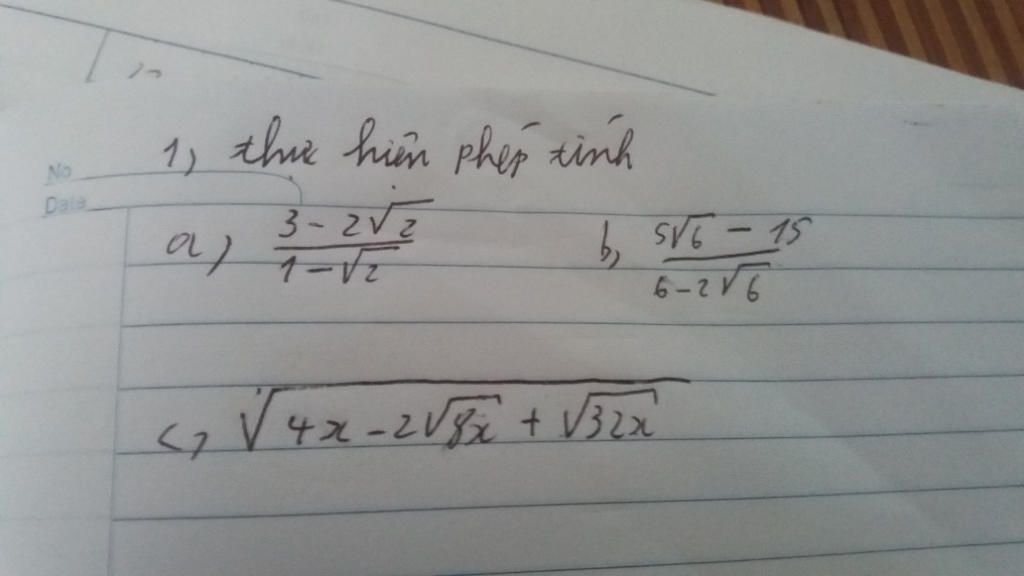 No
Date
1, thưc hiên phép tính
a, \frac{3-2\sqrt{2}}{1-\sqrt{2}} b, \frac{5\sqrt{6}-15}{6-2\sqrt{6}}
c, \sqrt{4x-2\sqrt{8x}+\sqrt{32x}}